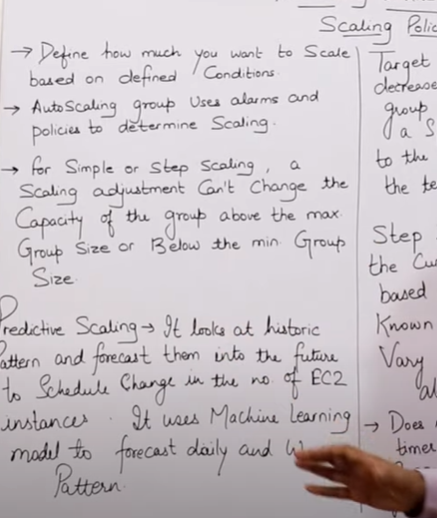 Scaling
→ Define how much you want to Scale
based on defined Conditions.
→ AutoScaling group Uses alarms and
policies to determine Scaling.
→ for Simple or Step Scaling, a
Scaling adjustment Can't Change the
Capacity of the group above the max.
Group Size or Below the min. Group
Size.
Predictive Scaling → It looks at historic
Pattern and forecast them into the future
to Schedule Change in the no. of EC2
instances. It uses Machine Learning
model to forecast daily and
Pattern.
Target
decrease
group
a
to the
the
Step
the
based
Known
Vary
→ Does
timer